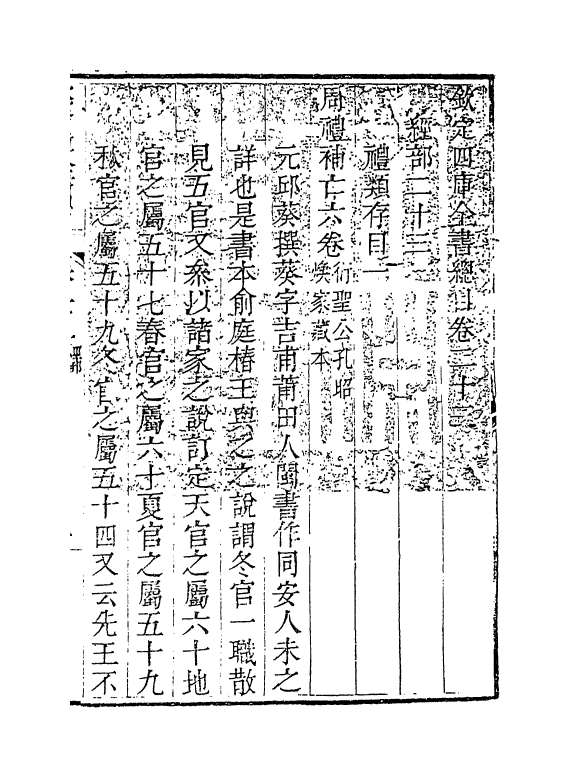 欽定四庫全書總目卷二十三
經部二十三
禮類存目一
周禮補亡六卷衍聖公孔昭
煥家藏本
元邱葵撰葵字吉甫莆田人閩書作同安人未之
詳也是書本俞庭椿王與之之說謂冬官一職散
見五官又參以諸家之說訂定天官之屬六十地
官之屬五十七春官之屬六十夏官之屬五十九
秋官之屬五十九冬官之屬五十四又云先王不